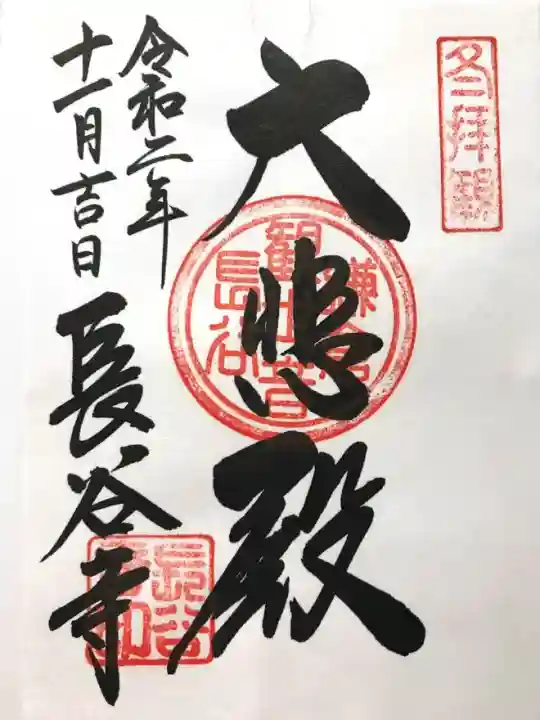 冬拝観
大悲殿
鎌倉
観世音
長谷
令和二年
十一月吉日
長谷寺